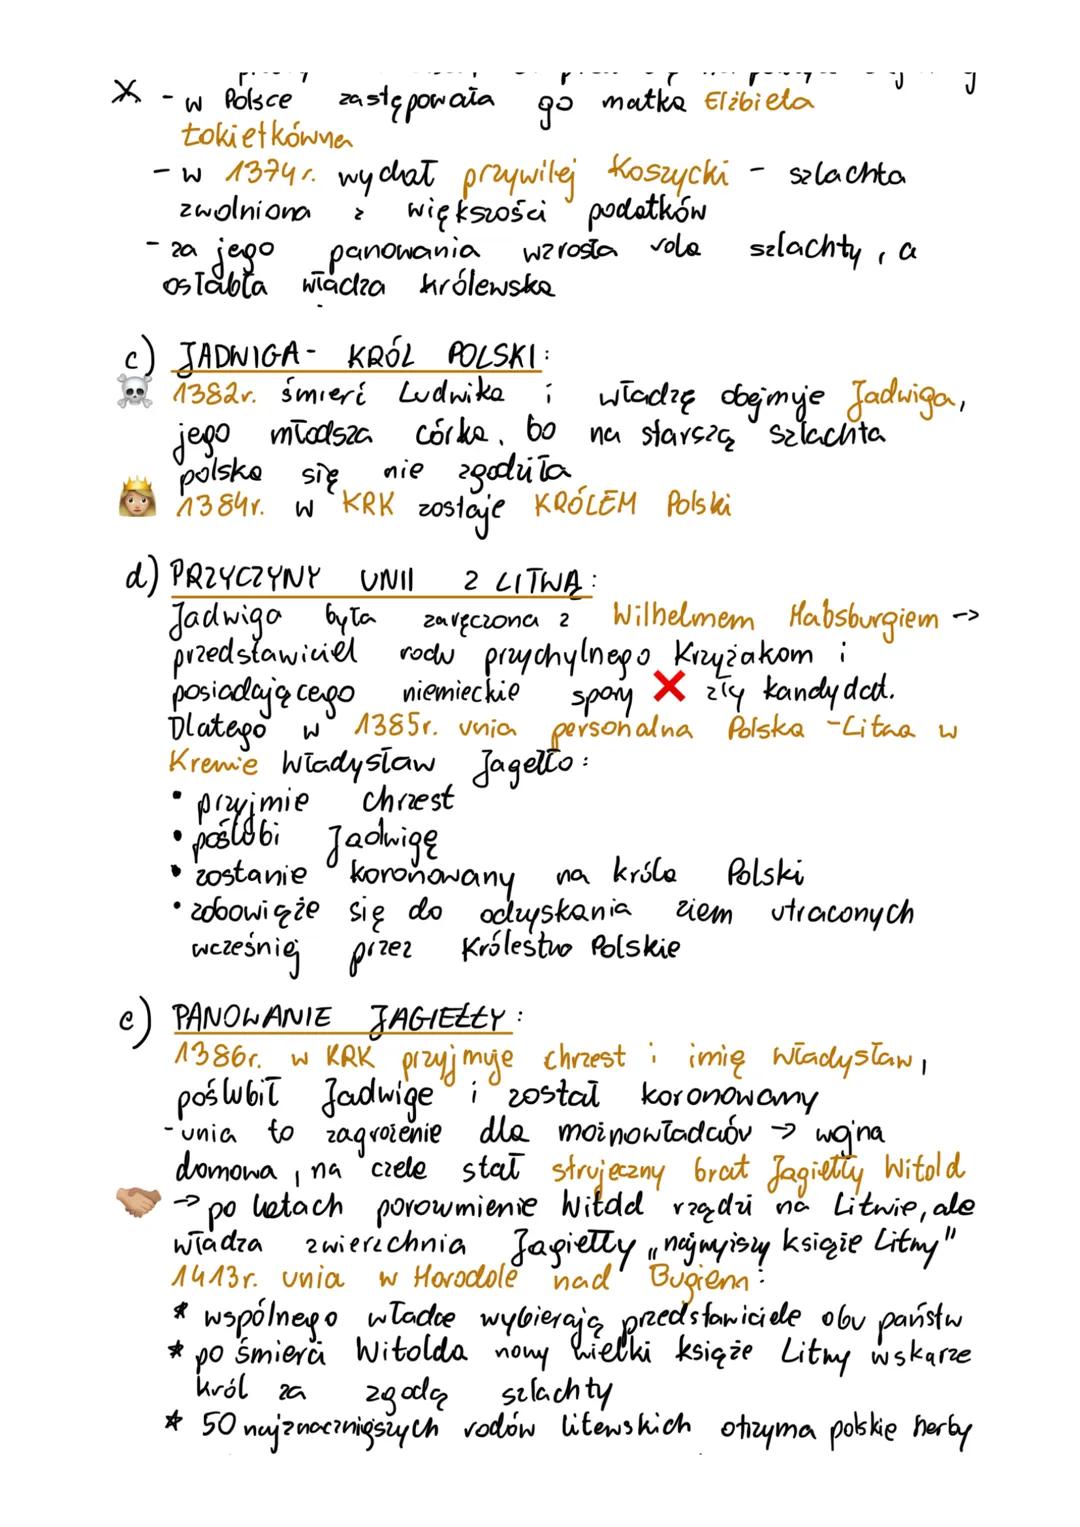 - w Polsce zastępowała go matka Elżbieta
Łokietkówna
- w 1374r. wydał przywilej Koszycki - szlachta
zwolniona z większości podatków
- za jego panowania wzrosła rola szlachty, a
osłabła władza królewska
c) JADWIGA - KRÓL POLSKI:
1382r. śmierć Ludwika i władzę obejmuje Jadwiga,
jego młodsza córka, bo na starszą szlachta
polska się nie zgodziła
1384r. w KRK zostaje KRÓLEM Polski
d) PRZYCZYNY UNII Z LITWĄ:
Jadwiga była zaręczona z Wilhelmem Habsburgiem ->
przedstawiciel rodu przychylnego Krzyżakom i
posiadającego niemieckie spory ❌ zły kandydat.
Dlatego w 1385r. unia personalna Polska - Litwa w
Krewie Władysław Jagełło:
• przyjmie chrzest
• poślubi Jadwigę
• zostanie koronowany na króla Polski
• zobowiąże się do odzyskania ziem utraconych
wcześniej przez Królestwo Polskie
e) PANOWANIE JAGIEŁŁY:
1386r. w KRK przyjmuje chrzest i imię Władysław,
poślubił Jadwige i został koronowany
- unia to zagrożenie dla możnowładców -> wojna
domowa, na czele stał stryjeczny brat Jagiełły Witold
-> po latach porozumienie Witold rządzi na Litwie, ale
władza zwierzchnia Jagiełły „najwyższy książe Litwy"
1413r. unia w Horodole nad Bugiem:
* wspólnego władce wybierają przedstawiciele obu państw
* po śmierci Witolda nowy wielki książe Litwy wskarze
król za zgodą szlachty
* 50 najznaczniejszych rodów litewskich otrzyma polskie herby